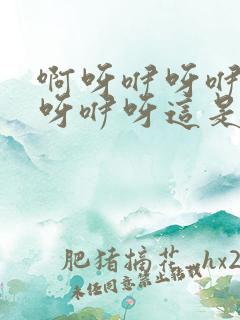 啊呀咿呀咿
呀咿呀這是
肥猪搞花.hx2
未经同意禁止转载